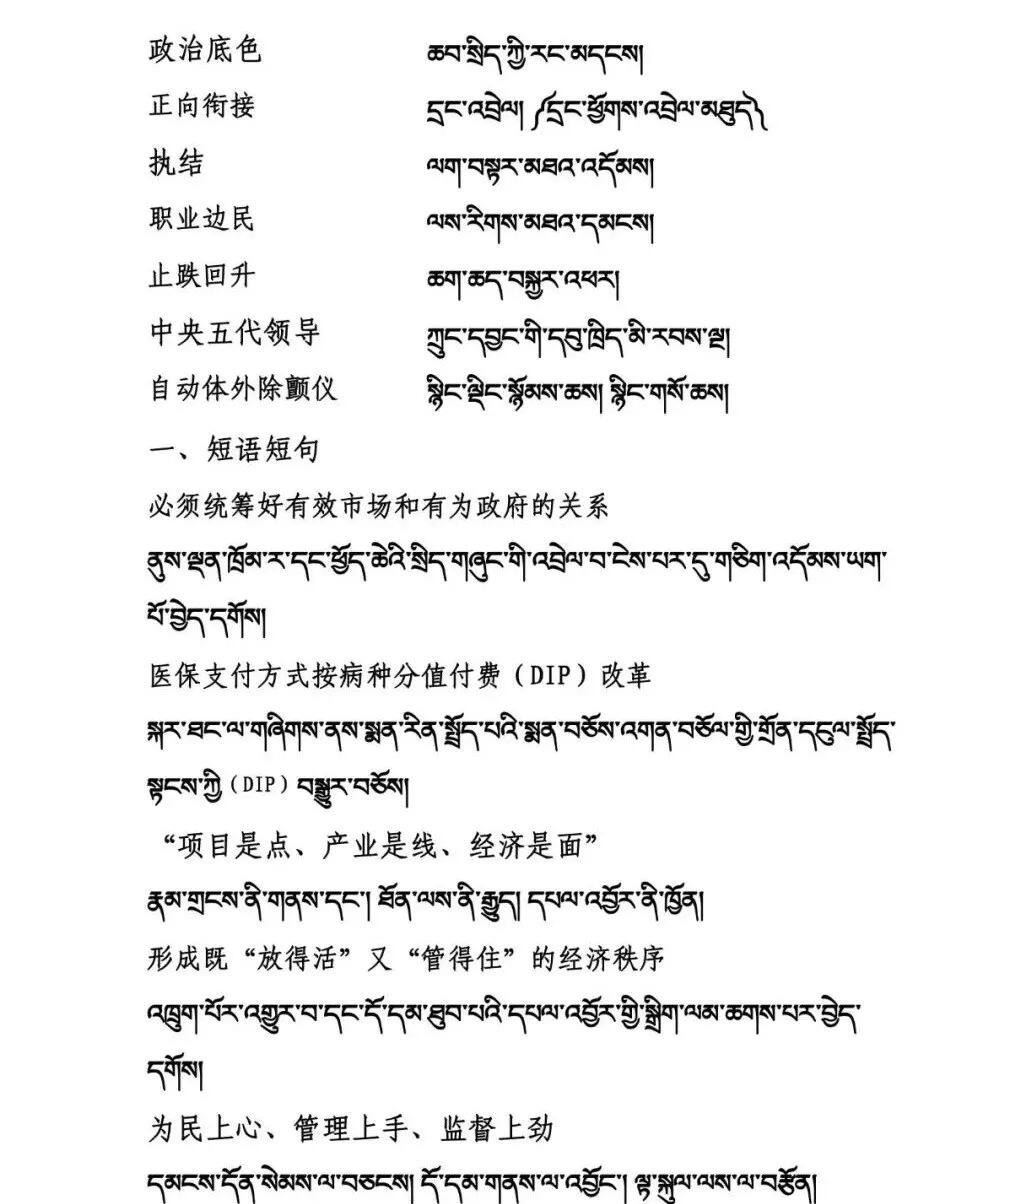 政治底色 ཆབ་སྲིད་ཀྱི་རང་མདངས།
正向衔接 དྲང་འབྲེལ། ༼དྲང་ཕྱོགས་འབྲེལ་མཐུད༽
执结 ལག་བསྟར་མཐའ་འདོམས།
职业边民 ལས་རིགས་མཐའ་དམངས།
止跌回升 ཆག་ཆད་བསྐྱར་འཕར།
中央五代领导 ཀྲུང་དབྱང་གི་དབུ་ཁྲིད་མི་རབས་ལྔ།
自动体外除颤仪 སྙིང་ལྡིང་སྙོམས་ཆས། སྙིང་གསོ་ཆས།
一、短语短句
必须统筹好有效市场和有为政府的关系
ནུས་ལྡན་ཁྲོམ་ར་དང་ཕྱོད་ཆེའི་སྲིད་གཞུང་གི་འབྲེལ་བ་ངེས་པར་དུ་གཅིག་འདོམས་ཡག་
པོ་བྱེད་དགོས།
医保支付方式按病种分值付费（DIP）改革
སྐར་ཐང་ལ་གཞིགས་ནས་སྨན་རིན་སྤྲོད་པའི་སྨན་བཅོས་འགན་བཅོལ་གྱི་གྲོན་དངུལ་སྤྲོད་
སྟངས་ཀྱི（DIP）བསྒྱུར་བཅོས།
“项目是点、产业是线、经济是面”
རྣམ་གྲངས་ནི་གནས་དང་། ཐོན་ལས་ནི་རྒྱུད། དཔལ་འབྱོར་ནི་ཁྱོན།
形成既“放得活”又“管得住”的经济秩序
འཁྲུག་པོར་འགྱུར་བ་དང་དོ་དམ་ཐུབ་པའི་དཔལ་འབྱོར་གྱི་སྒྲིག་ལམ་ཆགས་པར་བྱེད་
དགོས།
为民上心、管理上手、监督上劲
དམངས་དོན་སེམས་ལ་བཅངས། དོ་དམ་གནས་ལ་འབྱོང་། ལྟ་སྐུལ་ལས་ལ་བརྩོན།